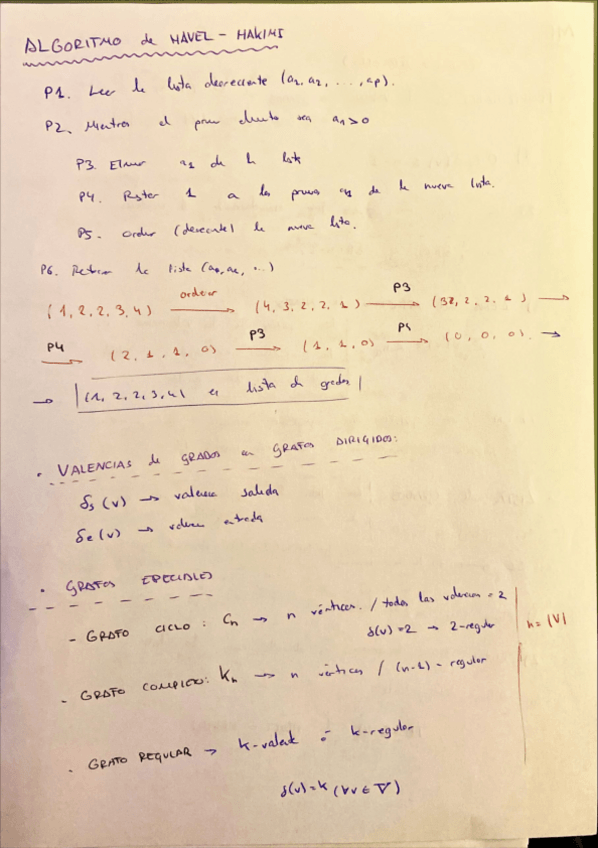 ALGORITMO de HAVEL - HAKIMI
P1. Leer la lista decreciente (a1, a2, ..., ap).
P2. Mientras el primer elemento sea a1 > 0
P3. Eliminar a1 de la lista
P4. Restar 1 a los primeros a1 de la nueva lista.
P5. Ordenar (decreciente) la nueva lista.
P6. Retornar la lista (a1, a2, ...)
(1, 2, 2, 3, 4) ordenar → (4, 3, 2, 2, 1) P3 → (3, 2, 2, 1) →
P4 → (2, 1, 1, 0) P3 → (1, 1, 0) P4 → (0, 0, 0). →
→ |(1, 2, 2, 3, 4) es lista de grados|
· VALENCIAS de GRADOS en GRAFOS DIRIGIDOS:
δs(v) → valencia salida
δe(v) → valencia entrada
· GRAFOS ESPECIALES
- GRAFO CICLO : Cn → n vértices. / todas las valencias = 2
δ(v) = 2 → 2-regular
n = |V|
- GRAFO COMPLETO: Kn → n vértices / (n-1) - regular
· GRAFO REGULAR → k-valente ó k-regular
δ(v) = k (∀v ∈ V)